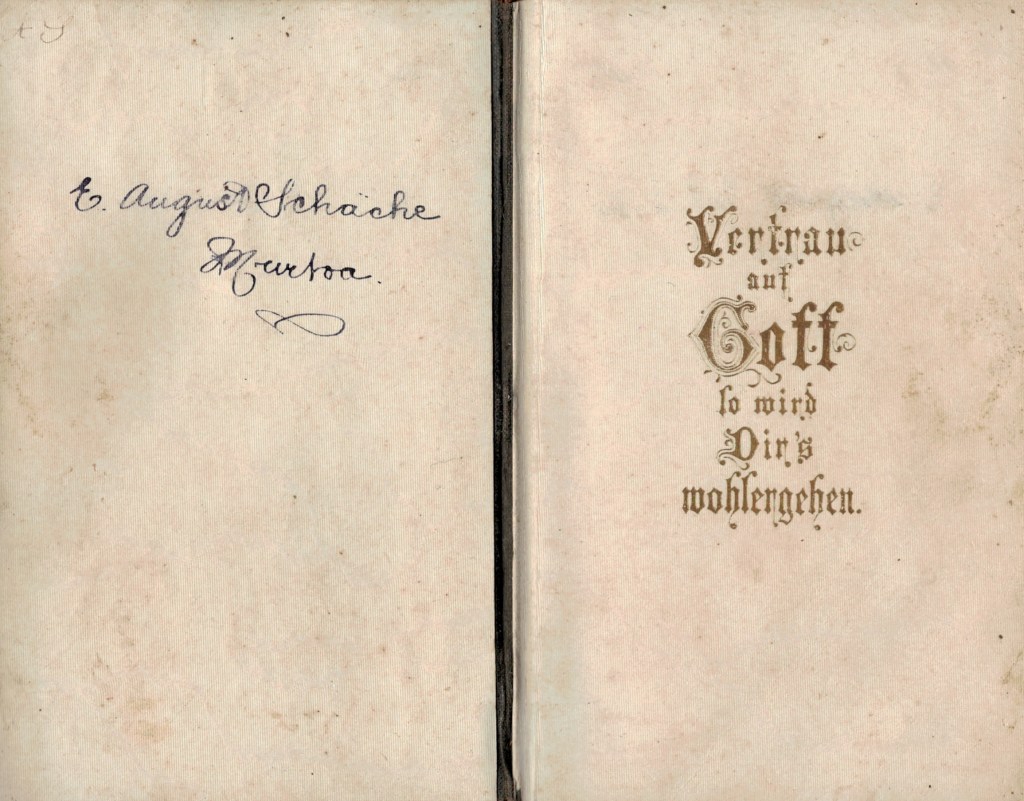 E. August Schäche
Murtoa.
Vertrau
auf
Gott
so wird
Dir's
wohlergehen.